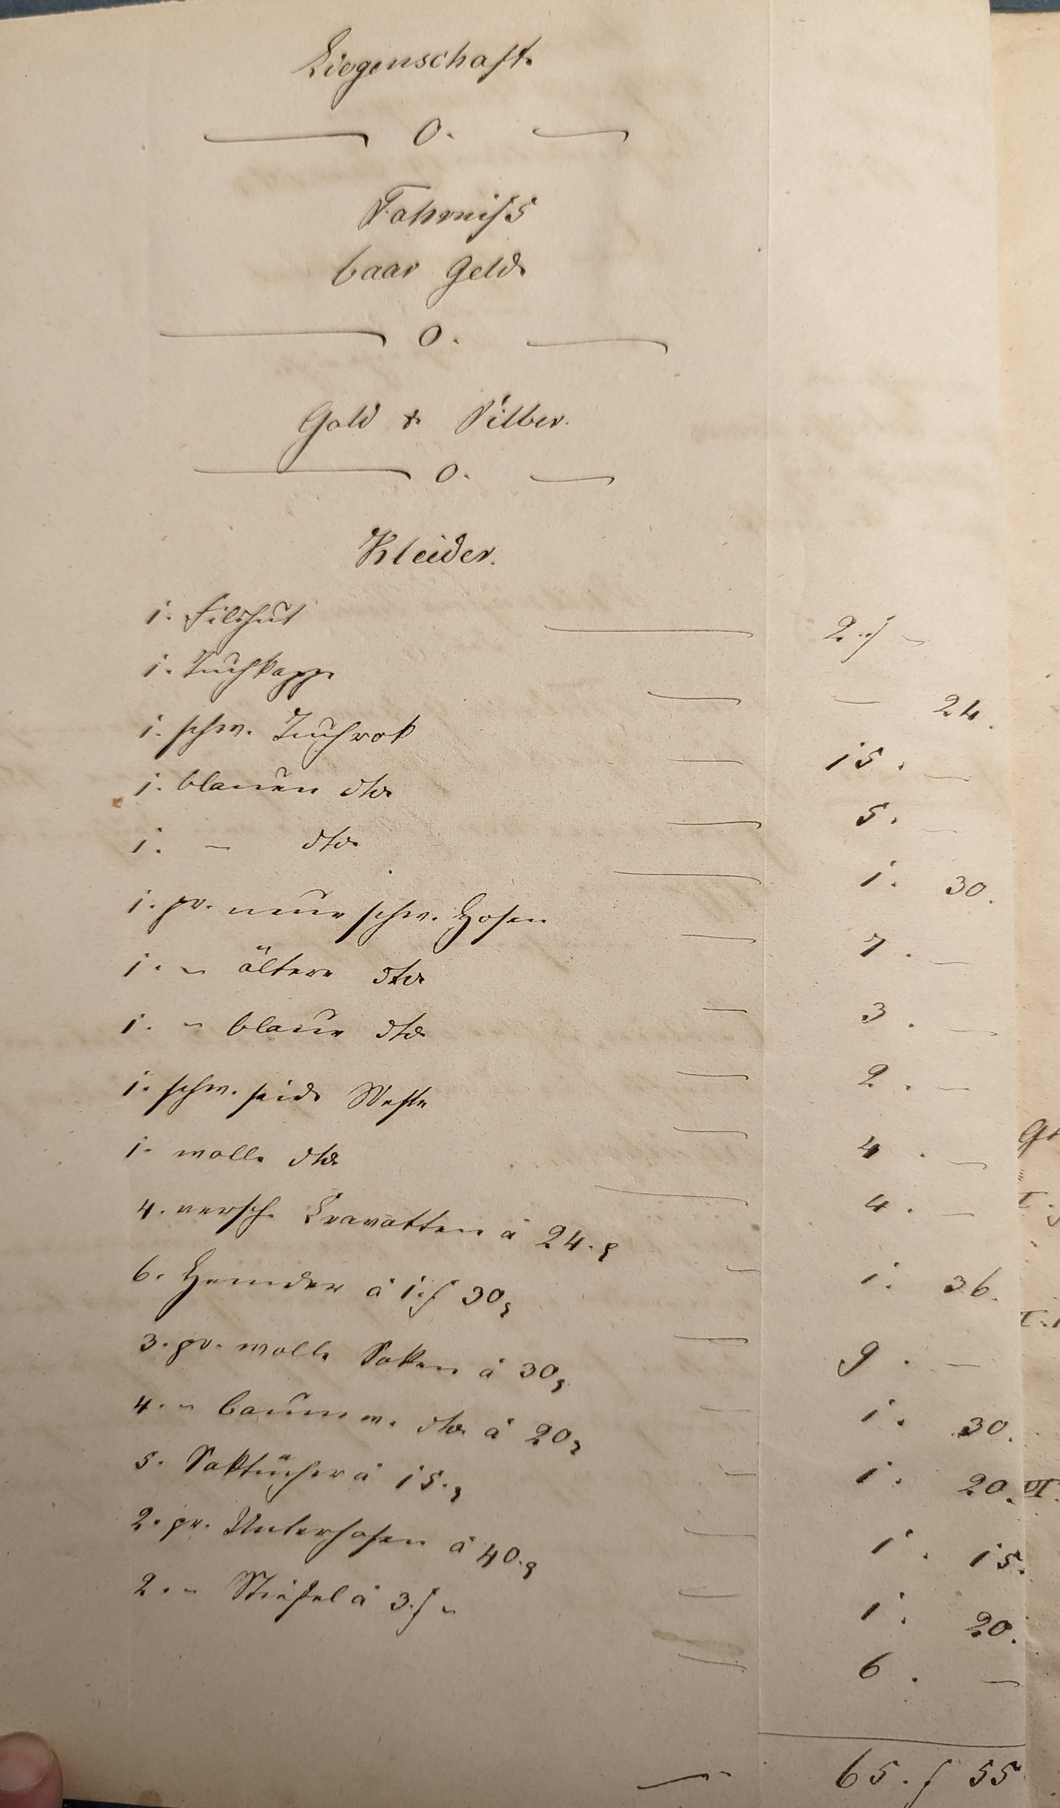 Liegenschaft.
— 0. —
Fahrniß
baar Geld.
— 0. —
Gold & Silber.
— 0. —
Kleider.
1. Filzhut — 2. f —
1. Tuchkappe — — 24.
1. schw. Tuchrok — 15. —
1. blauen dto — 5. —
1. — dto — 1. 30.
1. pr. neue schw. Hosen — 7. —
1. " ältere dto — 3. —
1. " blaue dto — 2. —
1. schw. seid. Weste — 4. —
1. woll. dto — 4. —
4. versch. Cravatten á 24. x — 1. 36.
6. Hemder á 1. f 30 x — 9. —
3. pr. woll. Soken á 30 x — 1. 30.
4. " baumw. dto á 20 x — 1. 20.
5. Saktücher á 15. x — 1. 15.
2. pr. Unterhosen á 40. x — 1. 20.
2. " Stiefel á 3. f " — 6. —
— 65. f 55